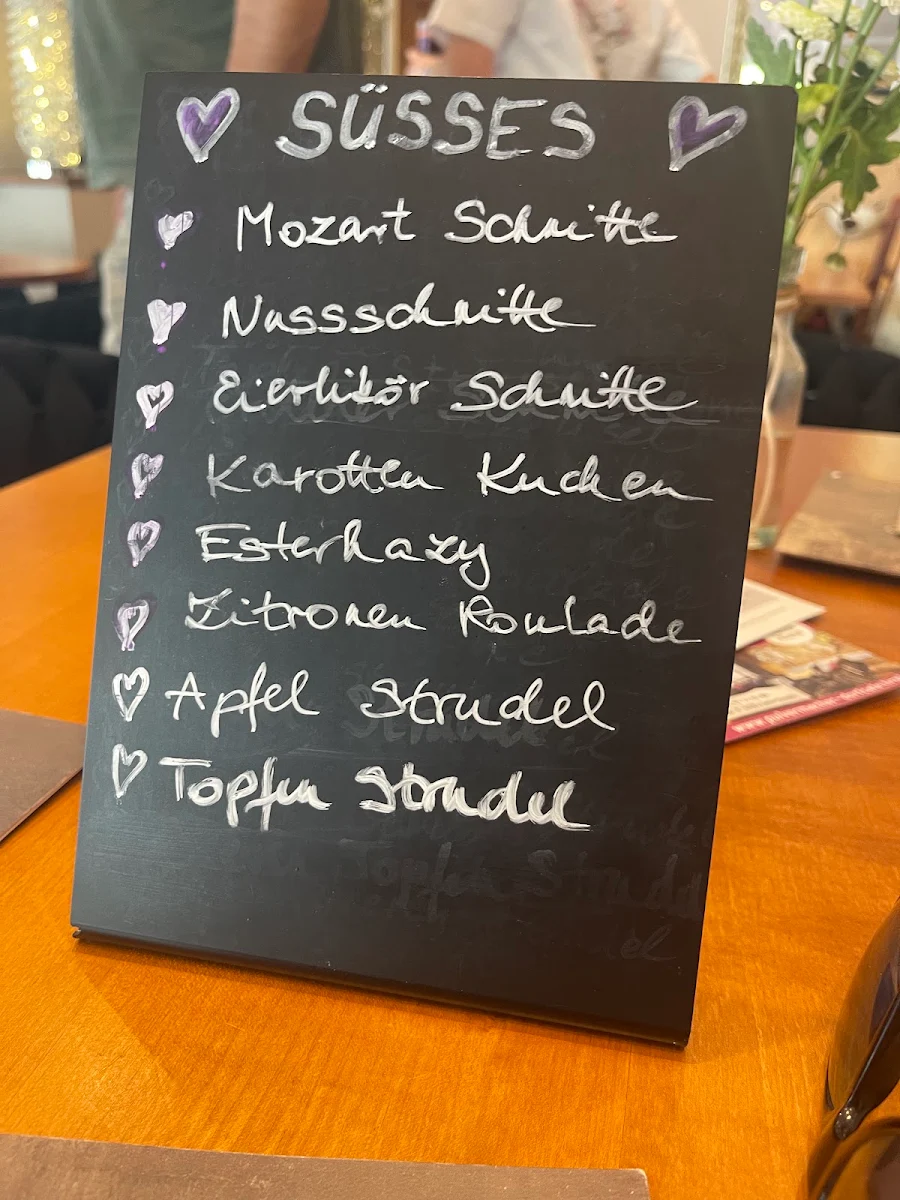 SÜSSES
Mozart Schnitte
Nussschnitte
Eierlikör Schnitte
Karotten Kuchen
Esterhazy
Zitronen Roulade
Apfel Strudel
Topfen Strudel